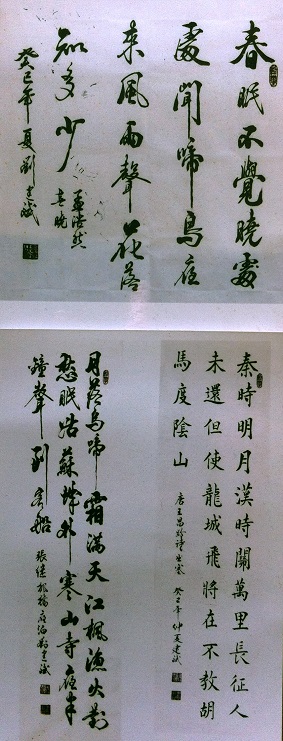 春眠不覺曉處
處聞啼鳥夜
来風雨聲花落
知多少
孟浩然
春曉
癸巳年夏劉建斌
秦時明月漢時關萬里長征人
未還但使龍城飛將在不教胡
馬度陰山
唐王昌齡詩出塞 癸巳年仲夏建斌
月落烏啼霜滿天江楓漁火對
愁眠姑蘇城外寒山寺夜半
鐘聲到客船
張继楓橋夜泊劉建斌